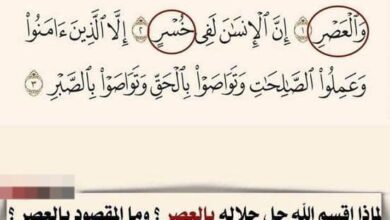 وَٱلْعَصْرِ ۝١ إِنَّ ٱلْإِنسَٰنَ لَفِى خُسْرٍ ۝٢ إِلَّا ٱلَّذِينَ ءَامَنُوا۟
وَعَمِلُوا۟ ٱلصَّٰلِحَٰتِ وَتَوَاصَوْا۟ بِٱلْحَقِّ وَتَوَاصَوْا۟ بِٱلصَّبْرِ ۝٣
لماذا اقسم الله جل جلاله بالعصر ؟ وما المقصود بالعصر ؟